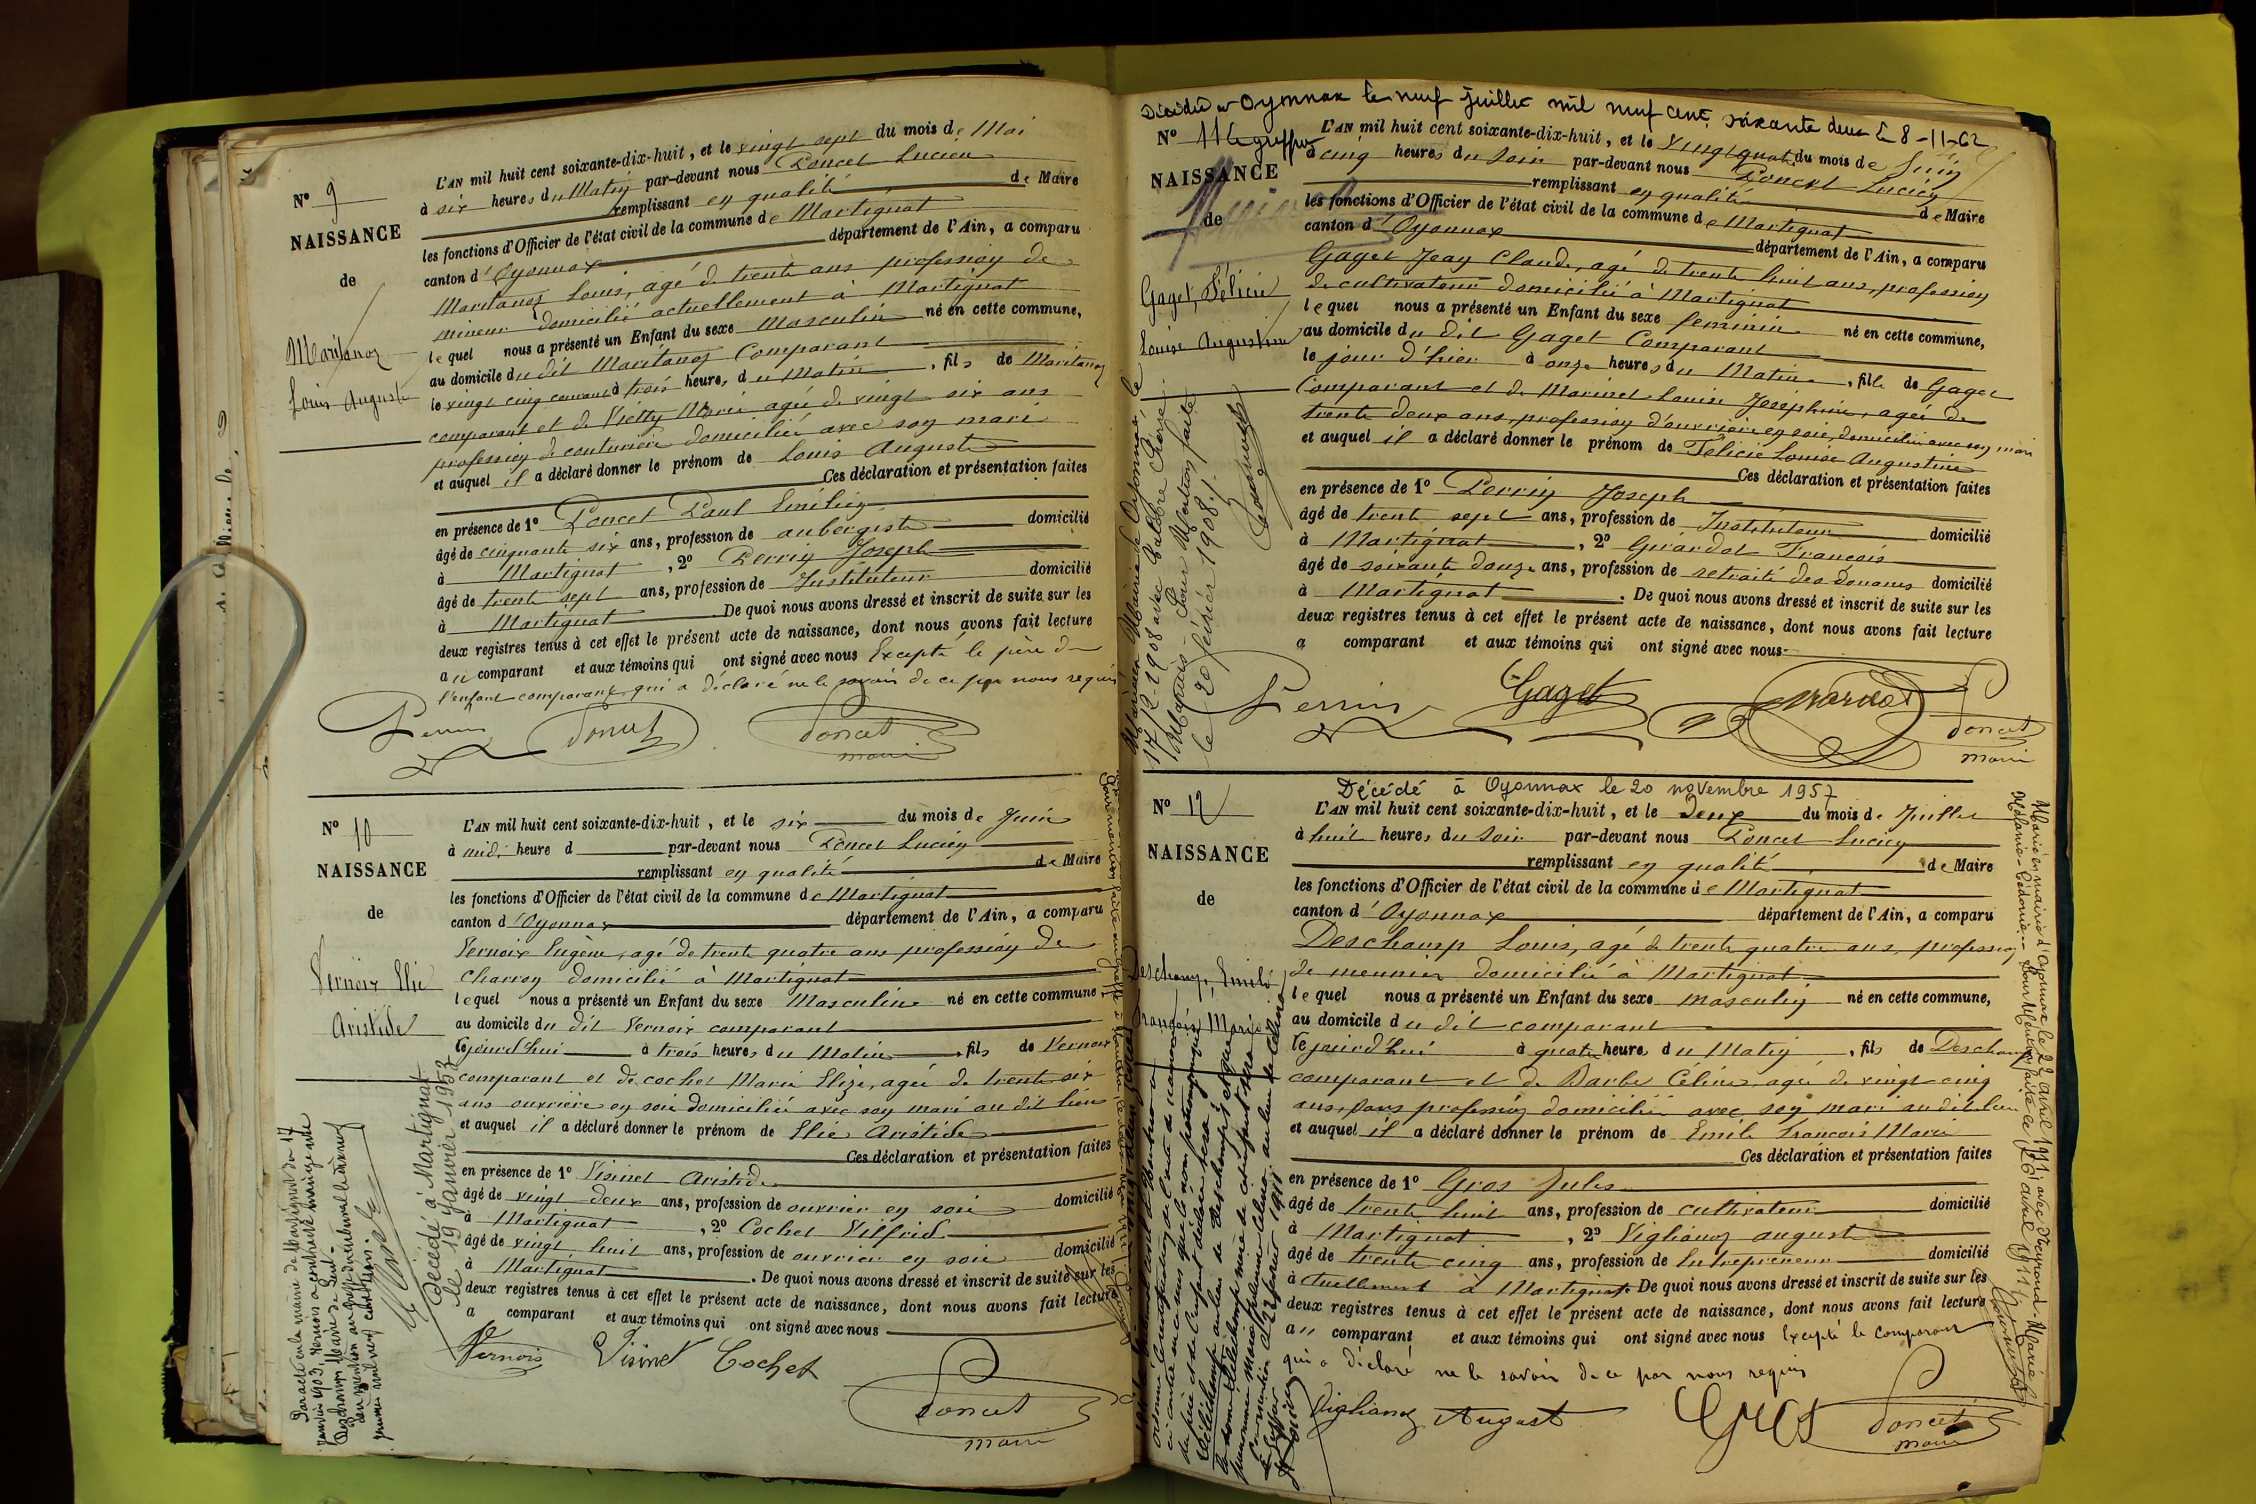 N° 9
NAISSANCE
de
Maritanoz
Louis Auguste
L'AN mil huit cent soixante-dix-huit, et le vingt sept du mois de Mai
à six heures du Matin par-devant nous Poncet Lucien
remplissant en qualité de Maire
les fonctions d'Officier de l'état civil de la commune de Martignat
canton d'Oyonnax département de l'Ain, a comparu
Maritanoz Louis, agé de trente ans profession de
mineur domicilié actuellement à Martignat
lequel nous a présenté un Enfant du sexe Masculin né en cette commune,
au domicile du dit Maritanoz Comparant
le vingt cinq courant à trois heures du Matin, fils de Maritanoz
comparant et de Vietty Marie agée de vingt six ans
profession de couturière domiciliée avec son mari
et auquel il a déclaré donner le prénom de Louis Auguste
Ces déclaration et présentation faites
en présence de 1° Poncet Paul Emilien
âgé de cinquante six ans, profession de aubergiste domicilié
à Martignat, 2° Perrin Joseph
âgé de trente sept ans, profession de Instituteur domicilié
à Martignat De quoi nous avons dressé et inscrit de suite sur les
deux registres tenus à cet effet le présent acte de naissance, dont nous avons fait lecture
au comparant et aux témoins qui ont signé avec nous Excepté le père de
l'enfant comparant qui a déclaré ne le savoir de ce par nous requis
Perrin Poncet Poncet
maire
N° 10
NAISSANCE
de
Vernoix Elie
Aristide
L'AN mil huit cent soixante-dix-huit, et le six du mois de Juin
à midi heure d par-devant nous Poncet Lucien
remplissant en qualité de Maire
les fonctions d'Officier de l'état civil de la commune de Martignat
canton d'Oyonnax département de l'Ain, a comparu
Vernoix Eugène, agé de trente quatre ans profession de
charron domicilié à Martignat
lequel nous a présenté un Enfant du sexe Masculin né en cette commune
au domicile du dit Vernoix comparant
lejourd'hui à trois heures du Matin, fils de Vernoix
comparant et de cochet Marie Elize, agée de trente six
ans ouvrière en soie domiciliée avec son mari au dit lieu
et auquel il a déclaré donner le prénom de Elie Aristide
Ces déclaration et présentation faites
en présence de 1° Visinet Aristide
âgé de vingt deux ans, profession de ouvrier en soie domicilié
à Martignat, 2° Cochet Vilfrid
âgé de vingt huit ans, profession de ouvrier en soie domicilié
à Martignat. De quoi nous avons dressé et inscrit de suite sur les
deux registres tenus à cet effet le présent acte de naissance, dont nous avons fait lecture
a comparant et aux témoins qui ont signé avec nous
Vernois Visinet Cochet
Poncet
maire
Décédé à Martignat
le 19 Janvier 1953
Par acte en la mairie de Martignat du 17
janvier 1903, Vernois a contracté mariage avec
Deschamps Marie
Décédée à Oyonnax le neuf juillet mil neuf cent soixante deux le 8-11-62
Le greffier
N° 11
NAISSANCE
de
Gaget, Félicie
Louise Augustine
L'AN mil huit cent soixante-dix-huit, et le Vingt quatre du mois de Juin
à cinq heures du Soir par-devant nous Poncet Lucien
remplissant en qualité de Maire
les fonctions d'Officier de l'état civil de la commune de Martignat
canton d'Oyonnax département de l'Ain, a comparu
Gaget Jean Claude, agé de trente huit ans, profession
de cultivateur domicilié à Martignat
lequel nous a présenté un Enfant du sexe feminin né en cette commune,
au domicile du dit Gaget Comparant
le jour d'hier à onze heures du Matin, fille de Gaget
Comparant et de Marinet Louise Joséphine, agée de
trente deux ans, profession d'ouvrière en soie, domiciliée avec son mari
et auquel il a déclaré donner le prénom de Félicie Louise Augustine
Ces déclaration et présentation faites
en présence de 1° Perrin Joseph
âgé de trente sept ans, profession de Instituteur domicilié
à Martignat, 2° Girardot François
âgé de soixante douze ans, profession de retraité des douanes domicilié
à Martignat. De quoi nous avons dressé et inscrit de suite sur les
deux registres tenus à cet effet le présent acte de naissance, dont nous avons fait lecture
a comparant et aux témoins qui ont signé avec nous
Perrin Gaget Girardot Poncet
maire
le 20 février 1908
Décédé à Oyonnax le 20 novembre 1957
N° 12
NAISSANCE
de
Deschamp, Emile
François Marie
L'AN mil huit cent soixante-dix-huit, et le Deux du mois de Juillet
à huit heures du Soir par-devant nous Poncet Lucien
remplissant en qualité de Maire
les fonctions d'Officier de l'état civil de la commune de Martignat
canton d'Oyonnax département de l'Ain, a comparu
Deschamp Louis, agé de trente quatre ans, profession
de meunier domicilié à Martignat
lequel nous a présenté un Enfant du sexe masculin né en cette commune,
au domicile du dit comparant
lejourd'hui à quatre heures du Matin, fils de Deschamp
comparant et de Barbe Céline agée de vingt cinq
ans, sans profession domiciliée avec son mari au dit lieu
et auquel il a déclaré donner le prénom de Emile François Marie
Ces déclaration et présentation faites
en présence de 1° Gros Jules
âgé de trente huit ans, profession de cultivateur domicilié
à Martignat, 2° Viglianoz auguste
âgé de trente cinq ans, profession de Entrepreneur domicilié
à actuellement à Martignat. De quoi nous avons dressé et inscrit de suite sur les
deux registres tenus à cet effet le présent acte de naissance, dont nous avons fait lecture
a comparant et aux témoins qui ont signé avec nous Excepté le comparant
qui a déclaré ne le savoir de ce par nous requis
Viglianoz August Gros Poncet
maire
Marié en mairie d'Oyonnax, le 22 avril 1911, avec